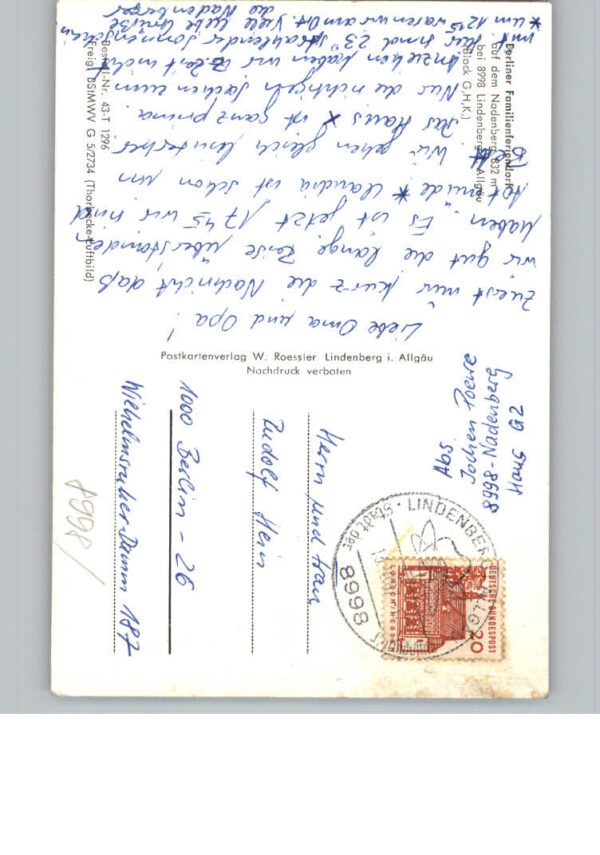 Berliner Familienferiendorf
auf dem Nadenberg 832 m
bei 8998 Lindenberg i. Allgäu
(Block G, H, K)
Liebe Oma und Opa!
Zuerst nur kurz die Nachricht daß
wir gut die lange Reise überstanden
haben. Es ist jetzt 17 45 wir sind
totmüde * Claudia ist schon im
Bett. Wir gehen gleich hinterher
Das Haus x ist ganz prima.
Nur die richtigen Sachen zum
Anziehen haben wir z. Zeit nicht
mit. Hier sind 23° strahlender Sonnenschein
* um 12 15 waren wir am Ort Viele liebe Grüße
die Nadenberger
Bestell-Nr. 43-T 1296
(Freig. BStMWV G 5/2734 (Thorbecke-Luftbild)
Postkartenverlag W. Roessler Lindenberg i. Allgäu
Nachdruck verboten
Abs.
Jochen
8998-Nadenberg
Haus G2
LINDENBERG ALLGÄU
8998
DEUTSCHE BUNDESPOST
20
Herrn und Frau
Rudolf Hein
1000 Berlin - 26
Wilhelmsruher Damm 187
8998/